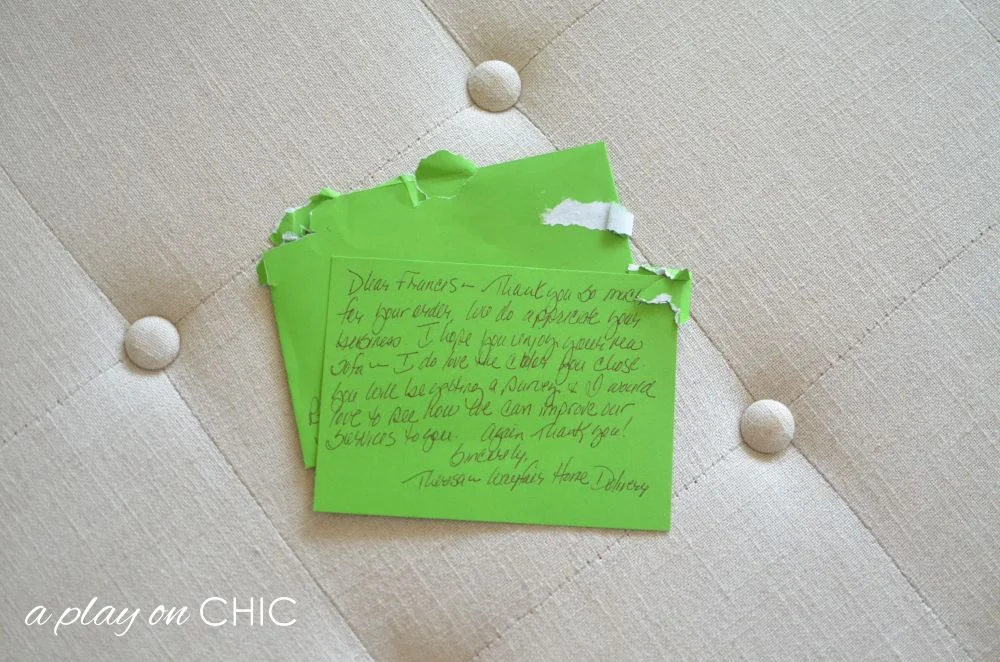 Dear Frances~ Thank you so much
for your order, We do appreciate your
business. I hope you enjoy your new
sofa ~ I do love the color you chose.
You will be getting a survey & I would
love to see how we can improve our
services to you. Again Thank you!
Sincerely,
Theresa ~ Wayfair Home Delivery
a play on CHIC